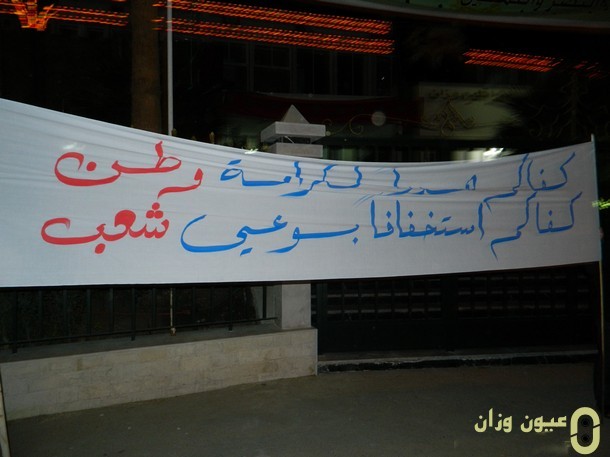 كفاكم هدرا لكرامة وطن
كفاكم استخفافا بوعي شعب
عيون وزان